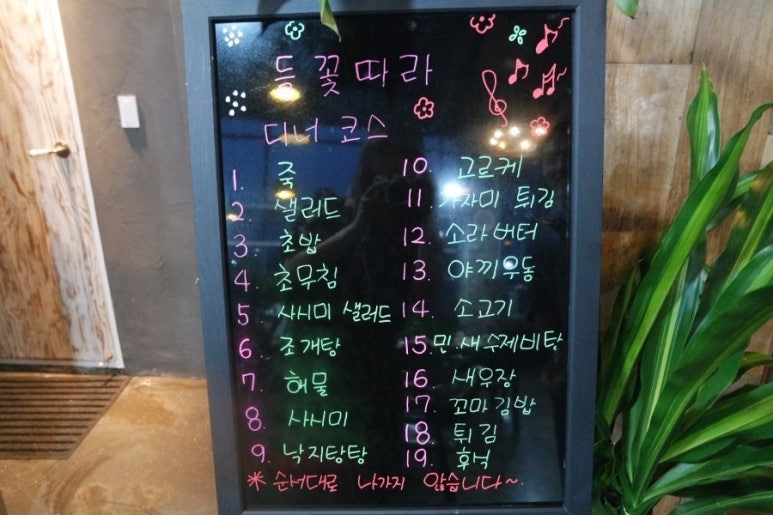 등꽃따라
디너 코스
1. 죽
2. 샐러드
3. 초밥
4. 초무침
5. 사시미 샐러드
6. 조개탕
7. 해물
8. 사시미
9. 낙지탕탕
10. 고로케
11. 가자미 튀김
12. 소라버터
13. 야끼우동
14. 소고기
15. 민.새수제비탕
16. 새우장
17. 꼬마김밥
18. 튀김
19. 후식
* 순서대로 나가지 않습니다~